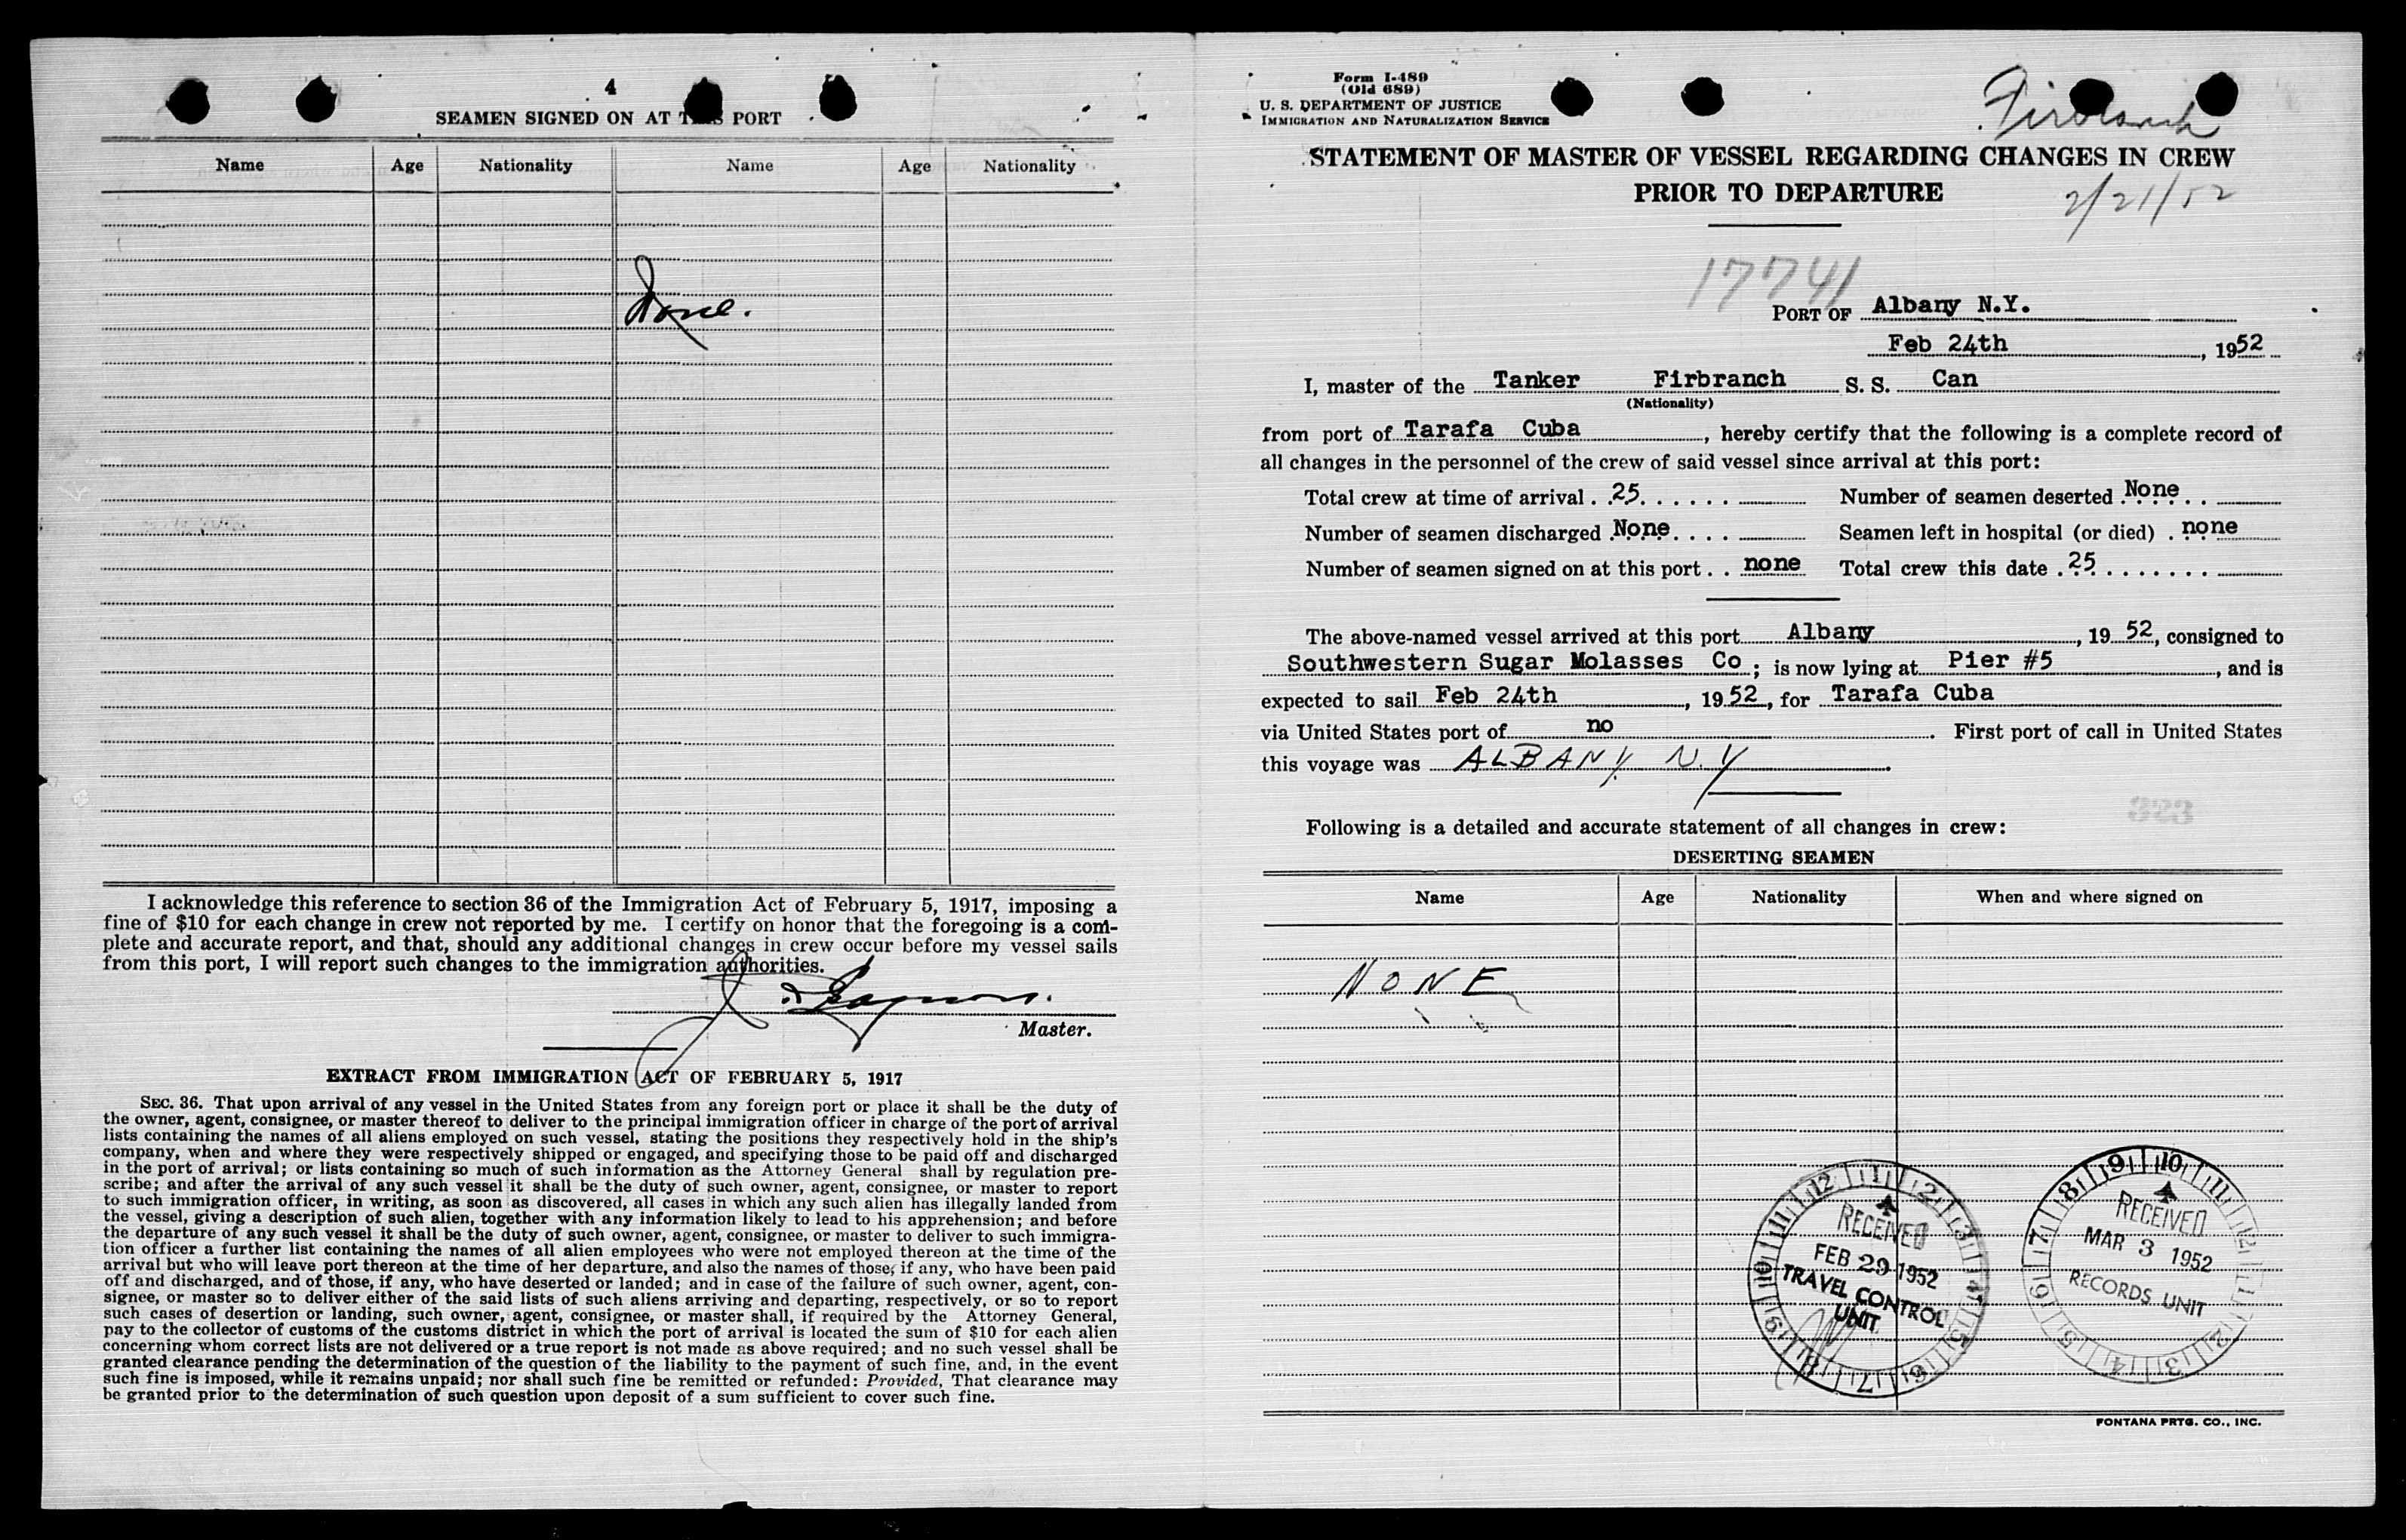 4
SEAMEN SIGNED ON AT THIS PORT
Name Age Nationality Name Age Nationality
None.
I acknowledge this reference to section 36 of the Immigration Act of February 5, 1917, imposing a
fine of $10 for each change in crew not reported by me. I certify on honor that the foregoing is a com-
plete and accurate report, and that, should any additional changes in crew occur before my vessel sails
from this port, I will report such changes to the immigration authorities.
Master.
EXTRACT FROM IMMIGRATION ACT OF FEBRUARY 5, 1917
SEC. 36. That upon arrival of any vessel in the United States from any foreign port or place it shall be the duty of
the owner, agent, consignee, or master thereof to deliver to the principal immigration officer in charge of the port of arrival
lists containing the names of all aliens employed on such vessel, stating the positions they respectively hold in the ship's
company, when and where they were respectively shipped or engaged, and specifying those to be paid off and discharged
in the port of arrival; or lists containing so much of such information as the Attorney General shall by regulation pre-
scribe; and after the arrival of any such vessel it shall be the duty of such owner, agent, consignee, or master to report
to such immigration officer, in writing, as soon as discovered, all cases in which any such alien has illegally landed from
the vessel, giving a description of such alien, together with any information likely to lead to his apprehension; and before
the departure of any such vessel it shall be the duty of such owner, agent, consignee, or master to deliver to such immigra-
tion officer a further list containing the names of all alien employees who were not employed thereon at the time of the
arrival but who will leave port thereon at the time of her departure, and also the names of those, if any, who have been paid
off and discharged, and of those, if any, who have deserted or landed; and in case of the failure of such owner, agent, con-
signee, or master so to deliver either of the said lists of such aliens arriving and departing, respectively, or so to report
such cases of desertion or landing, such owner, agent, consignee, or master shall, if required by the Attorney General,
pay to the collector of customs of the customs district in which the port of arrival is located the sum of $10 for each alien
concerning whom correct lists are not delivered or a true report is not made as above required; and no such vessel shall be
granted clearance pending the determination of the question of the liability to the payment of such fine, and, in the event
such fine is imposed, while it remains unpaid; nor shall such fine be remitted or refunded: Provided, That clearance may
be granted prior to the determination of such question upon deposit of a sum sufficient to cover such fine.
Form I-489
(Old 689)
U. S. DEPARTMENT OF JUSTICE
IMMIGRATION AND NATURALIZATION SERVICE
Firbranch
STATEMENT OF MASTER OF VESSEL REGARDING CHANGES IN CREW
PRIOR TO DEPARTURE
2/21/52
17741
PORT OF Albany N.Y.
Feb 24th, 1952
I, master of the Tanker Firbranch S. S. Can
(Nationality)
from port of Tarafa Cuba, hereby certify that the following is a complete record of
all changes in the personnel of the crew of said vessel since arrival at this port:
Total crew at time of arrival 25 Number of seamen deserted None
Number of seamen discharged None Seamen left in hospital (or died) none
Number of seamen signed on at this port none Total crew this date 25
The above-named vessel arrived at this port Albany, 1952, consigned to
Southwestern Sugar Molasses Co; is now lying at Pier #5, and is
expected to sail Feb 24th, 1952, for Tarafa Cuba
via United States port of no. First port of call in United States
this voyage was ALBANY N.Y.
323
Following is a detailed and accurate statement of all changes in crew:
DESERTING SEAMEN
Name Age Nationality When and where signed on
NONE
12 1 2 3 4 5 6 7 8 9 10 11
RECEIVED
FEB 29 1952
TRAVEL CONTROL
UNIT
9 10 11 12 1 2 3 4 5 6 7 8
RECEIVED
MAR 3 1952
RECORDS UNIT
FONTANA PRTG. CO., INC.